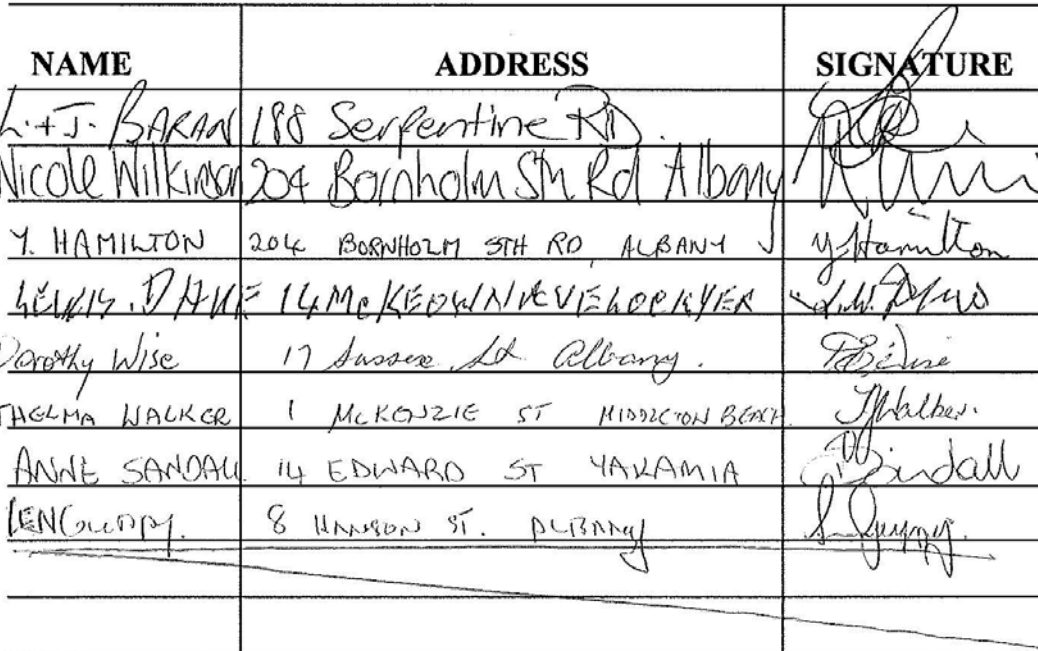 NAME ADDRESS SIGNATURE
L. + J. BARAN 188 Serpentine RD.
Nicole Wilkinson 204 Bornholm Sth Rd Albany
Y. HAMILTON 204 BORNHOLM STH RD, ALBANY Y Hamilton
LEWIS. 14 McKEOWN AVE LOCKYER
Dorothy Wise 17 Sussex St Albany.
THELMA WALKER 1 McKENZIE ST MIDDLETON BEACH. T Walker.
ANNE SANDALL 14 EDWARD ST YAKAMIA Sandall
LEN 8 HANSON ST. ALBANY